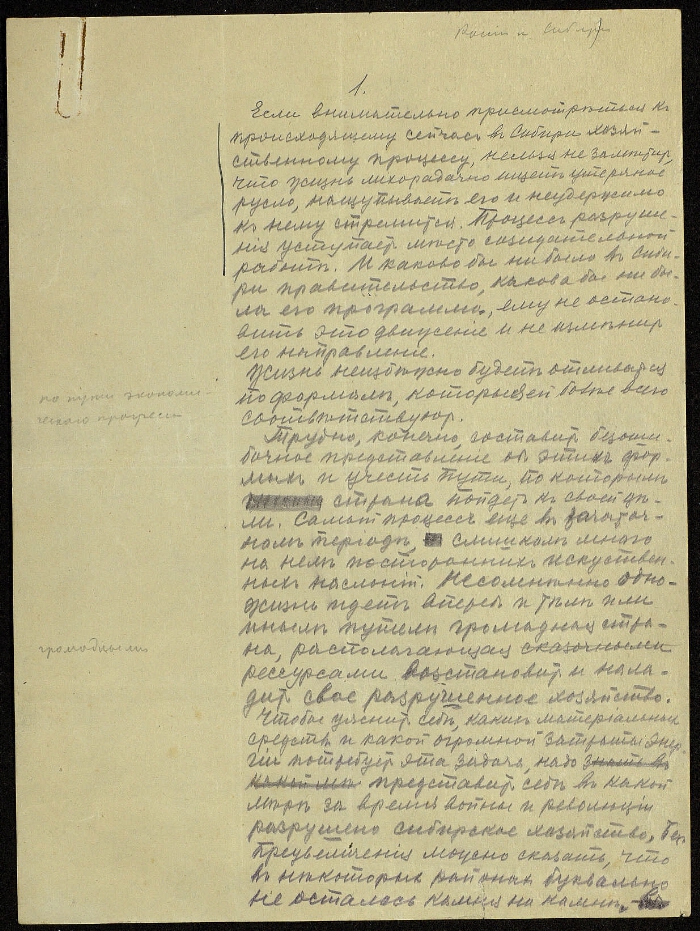 1.
Если внимательно присмотрѣться къ
происходящему сейчасъ въ Сибири хозяй-
ственному процессу, нельзя не замѣтить,
что жизнь лихорадочно ищетъ утеряное
русло, нащупываетъ его и неудержимо
къ нему стремится. Процессъ разруше-
нія уступаетъ мѣсто созидательной
работѣ. И каково бы ни было въ Сиби-
ри правительство, какова бы ни бы-
ла его программа, ему не остано-
вить это движеніе и не измѣнить
его направленіе.
Жизнь неизбѣжно будетъ отливаться
по формамъ, которые ей болѣе всего
соотвѣтствуют.
по пути экономи-
ческаго прогресса
Трудно, конечно, составить безоши-
бочное представленіе об этихъ фор-
махъ и учесть пути, по которымъ
страна пойдетъ къ своей цѣ-
ли. Самый процессъ еще въ зачаточ-
номъ періодѣ, слишкомъ много
на немъ постороннихъ искуствен-
ныхъ наслоній. Несомнѣнно одно-
жизнь идетъ впередъ и тѣмъ или
инымъ путемъ громадная стра-
на, располагающая сказочными
громадными
рессурсами возстановит и нала-
дит свое разрушенное хозяйство.
Чтобы уяснить себѣ, какихъ матеріальных
средствъ и какой огромной затраты энер-
гіи потребуетъ эта задача, надо знать въ
какой мѣ представить себѣ въ какой
мѣрѣ за время войны и революціи
разрушено сибирское хозяйство. Без
преувеличенія можно сказать, что
въ нѣкоторых районах буквально
не осталось камня на камнѣ.